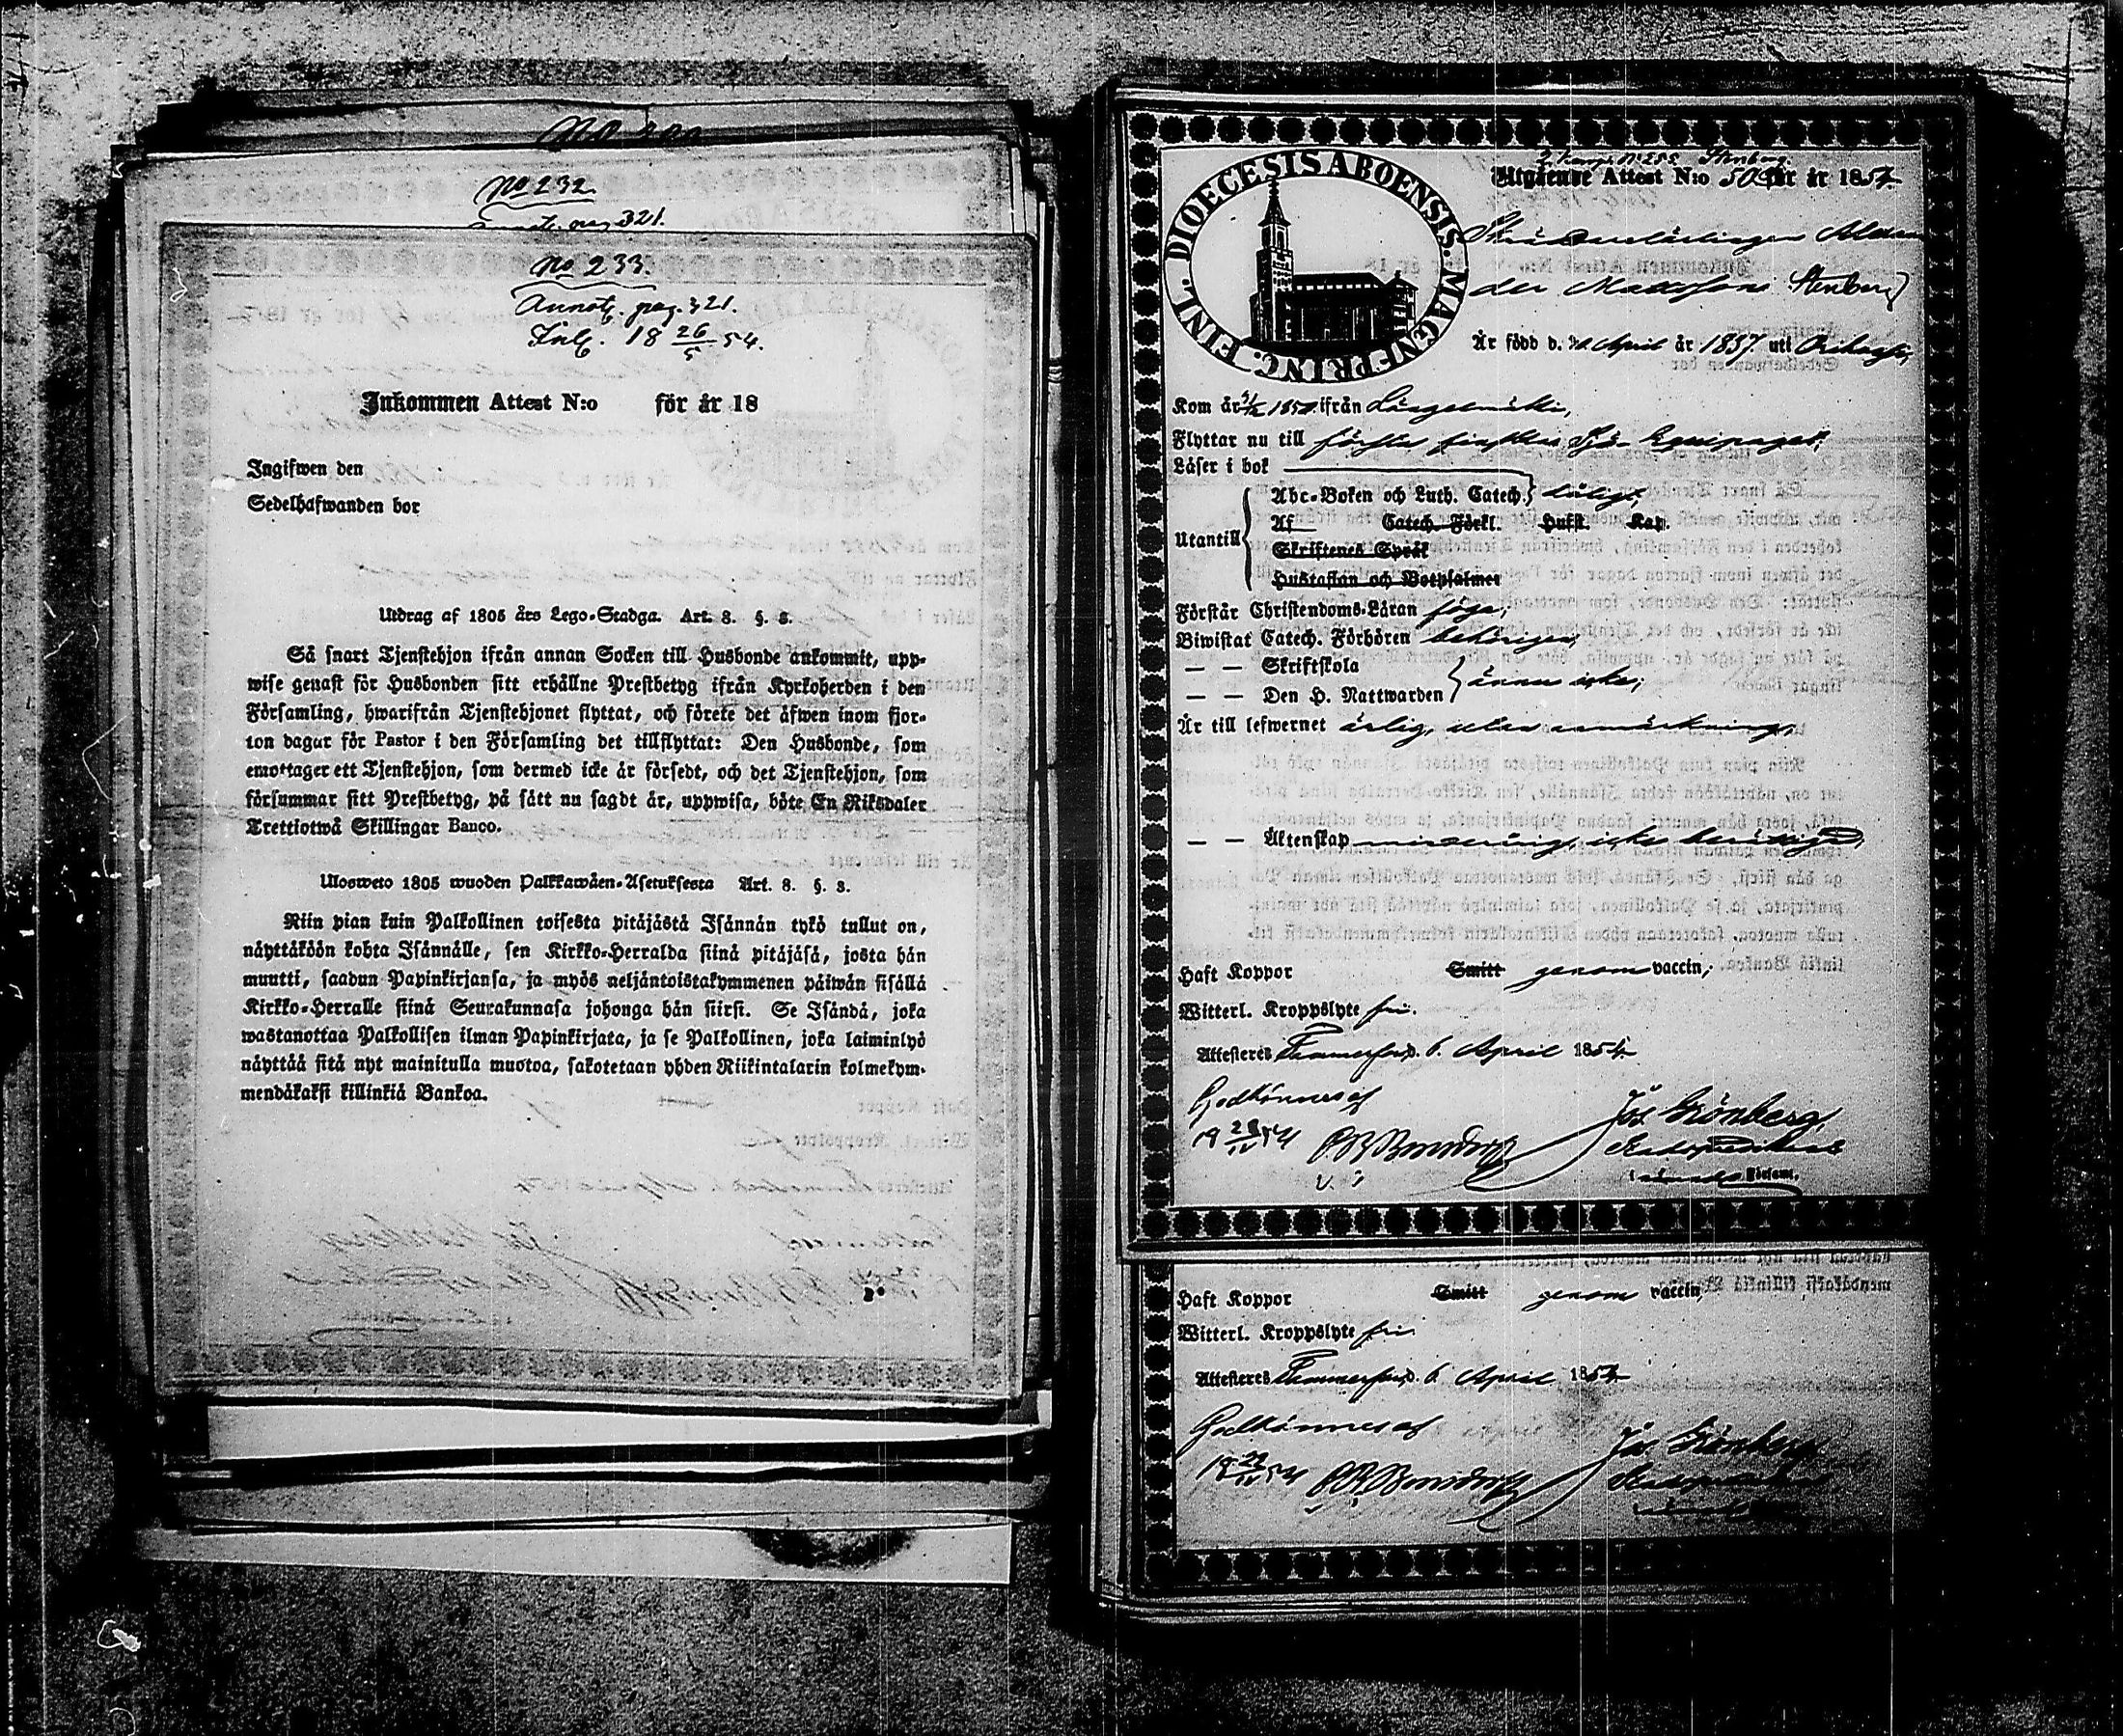 No 232.
pag. 321.
No 233.
Annot. pag. 321.
Inl. 18 26/5 54.
Inkommen Attest N:o för år 18
Ingifwen den
Sedelhafwanden bor
Utdrag af 1805 års Lego-Stadga. Art. 8. §. 8.
Så snart Tjenstehjon ifrån annan Socken till Husbonde ankommit, upp-
wise genast för Husbonden sitt erhållne Prestbetyg ifrån Kyrkoherden i den
Församling, hwarifrån Tjenstehjonet flyttat, och förete det äfwen inom fjor-
ton dagar för Pastor i den Församling det tillflyttat: Den Husbonde, som
emottager ett Tjenstehjon, som dermed icke är försedt, och det Tjenstehjon, som
försummar sitt Prestbetyg, på sätt nu sagdt är, uppwisa, böte En Riksdaler
Trettiotwå Skillingar Banco.
Ulosweto 1805 wuoden Palkkawäen-Asetuksesta Art. 8. §. 8.
Niin pian kuin Palkollinen toisesta pitäjästä Isännän tykö tullut on,
näyttäköön kohta Isännälle, sen Kirkko-Herralda siinä pitäjäsä, josta hän
muutti, saadun Papinkirjansa, ja myös neljäntoistakymmenen päiwän sisällä
Kirkko-Herralle siinä Seurakunnasa johonga hän siirsi. Se Isändä, joka
wastanottaa Palkollisen ilman Papinkirjata, ja se Palkollinen, joka laiminlyö
näyttää sitä nyt mainitulla muotoa, sakotetaan yhden Riikintalarin kolmekym-
mendäkaksi killinkiä Bankoa.
DIOECESIS ABOENSIS. MAGN. PRINC. FINL.
Stenberg.
Utgående Attest N:o för år 1854
Skräddarelärlingen Alexan
der Mattsson Stenberg
Är född d. April år 1837 uti Orihvesi,
Kom år ifrån Längelmäki,
Flyttar nu till första finska Sjö-Equipaget,
Läser i bok
Utantill
Abc-Boken och Luth. Catech. dåligt,
Af Catech. Förkl. Hufst. Kap.
Skriftenes Språk
Hustaflan och Botpsalmer
Förstår Christendoms-Läran föga,
Biwistat Catech. Förhören behörigen,
— — Skriftskola
— — Den H. Nattwarden ännu icke;
Är till lefwernet ärlig, utan anmärkning,
— — Äktenskap minderårig, icke berättigad,
Haft Koppor Smitt genom vaccin,
Witterl. Kroppslyte fri.
Attesteres Tammerfors d. 6. April 1854
Godkännes af
Jos Grönberg,
Stadspredikant
Förfaml.
Haft Koppor Smitt genom vaccin,
Witterl. Kroppslyte fri
Attesteres Tammerfors d. 6. April 1854
Godkännes af
Jos Grönberg